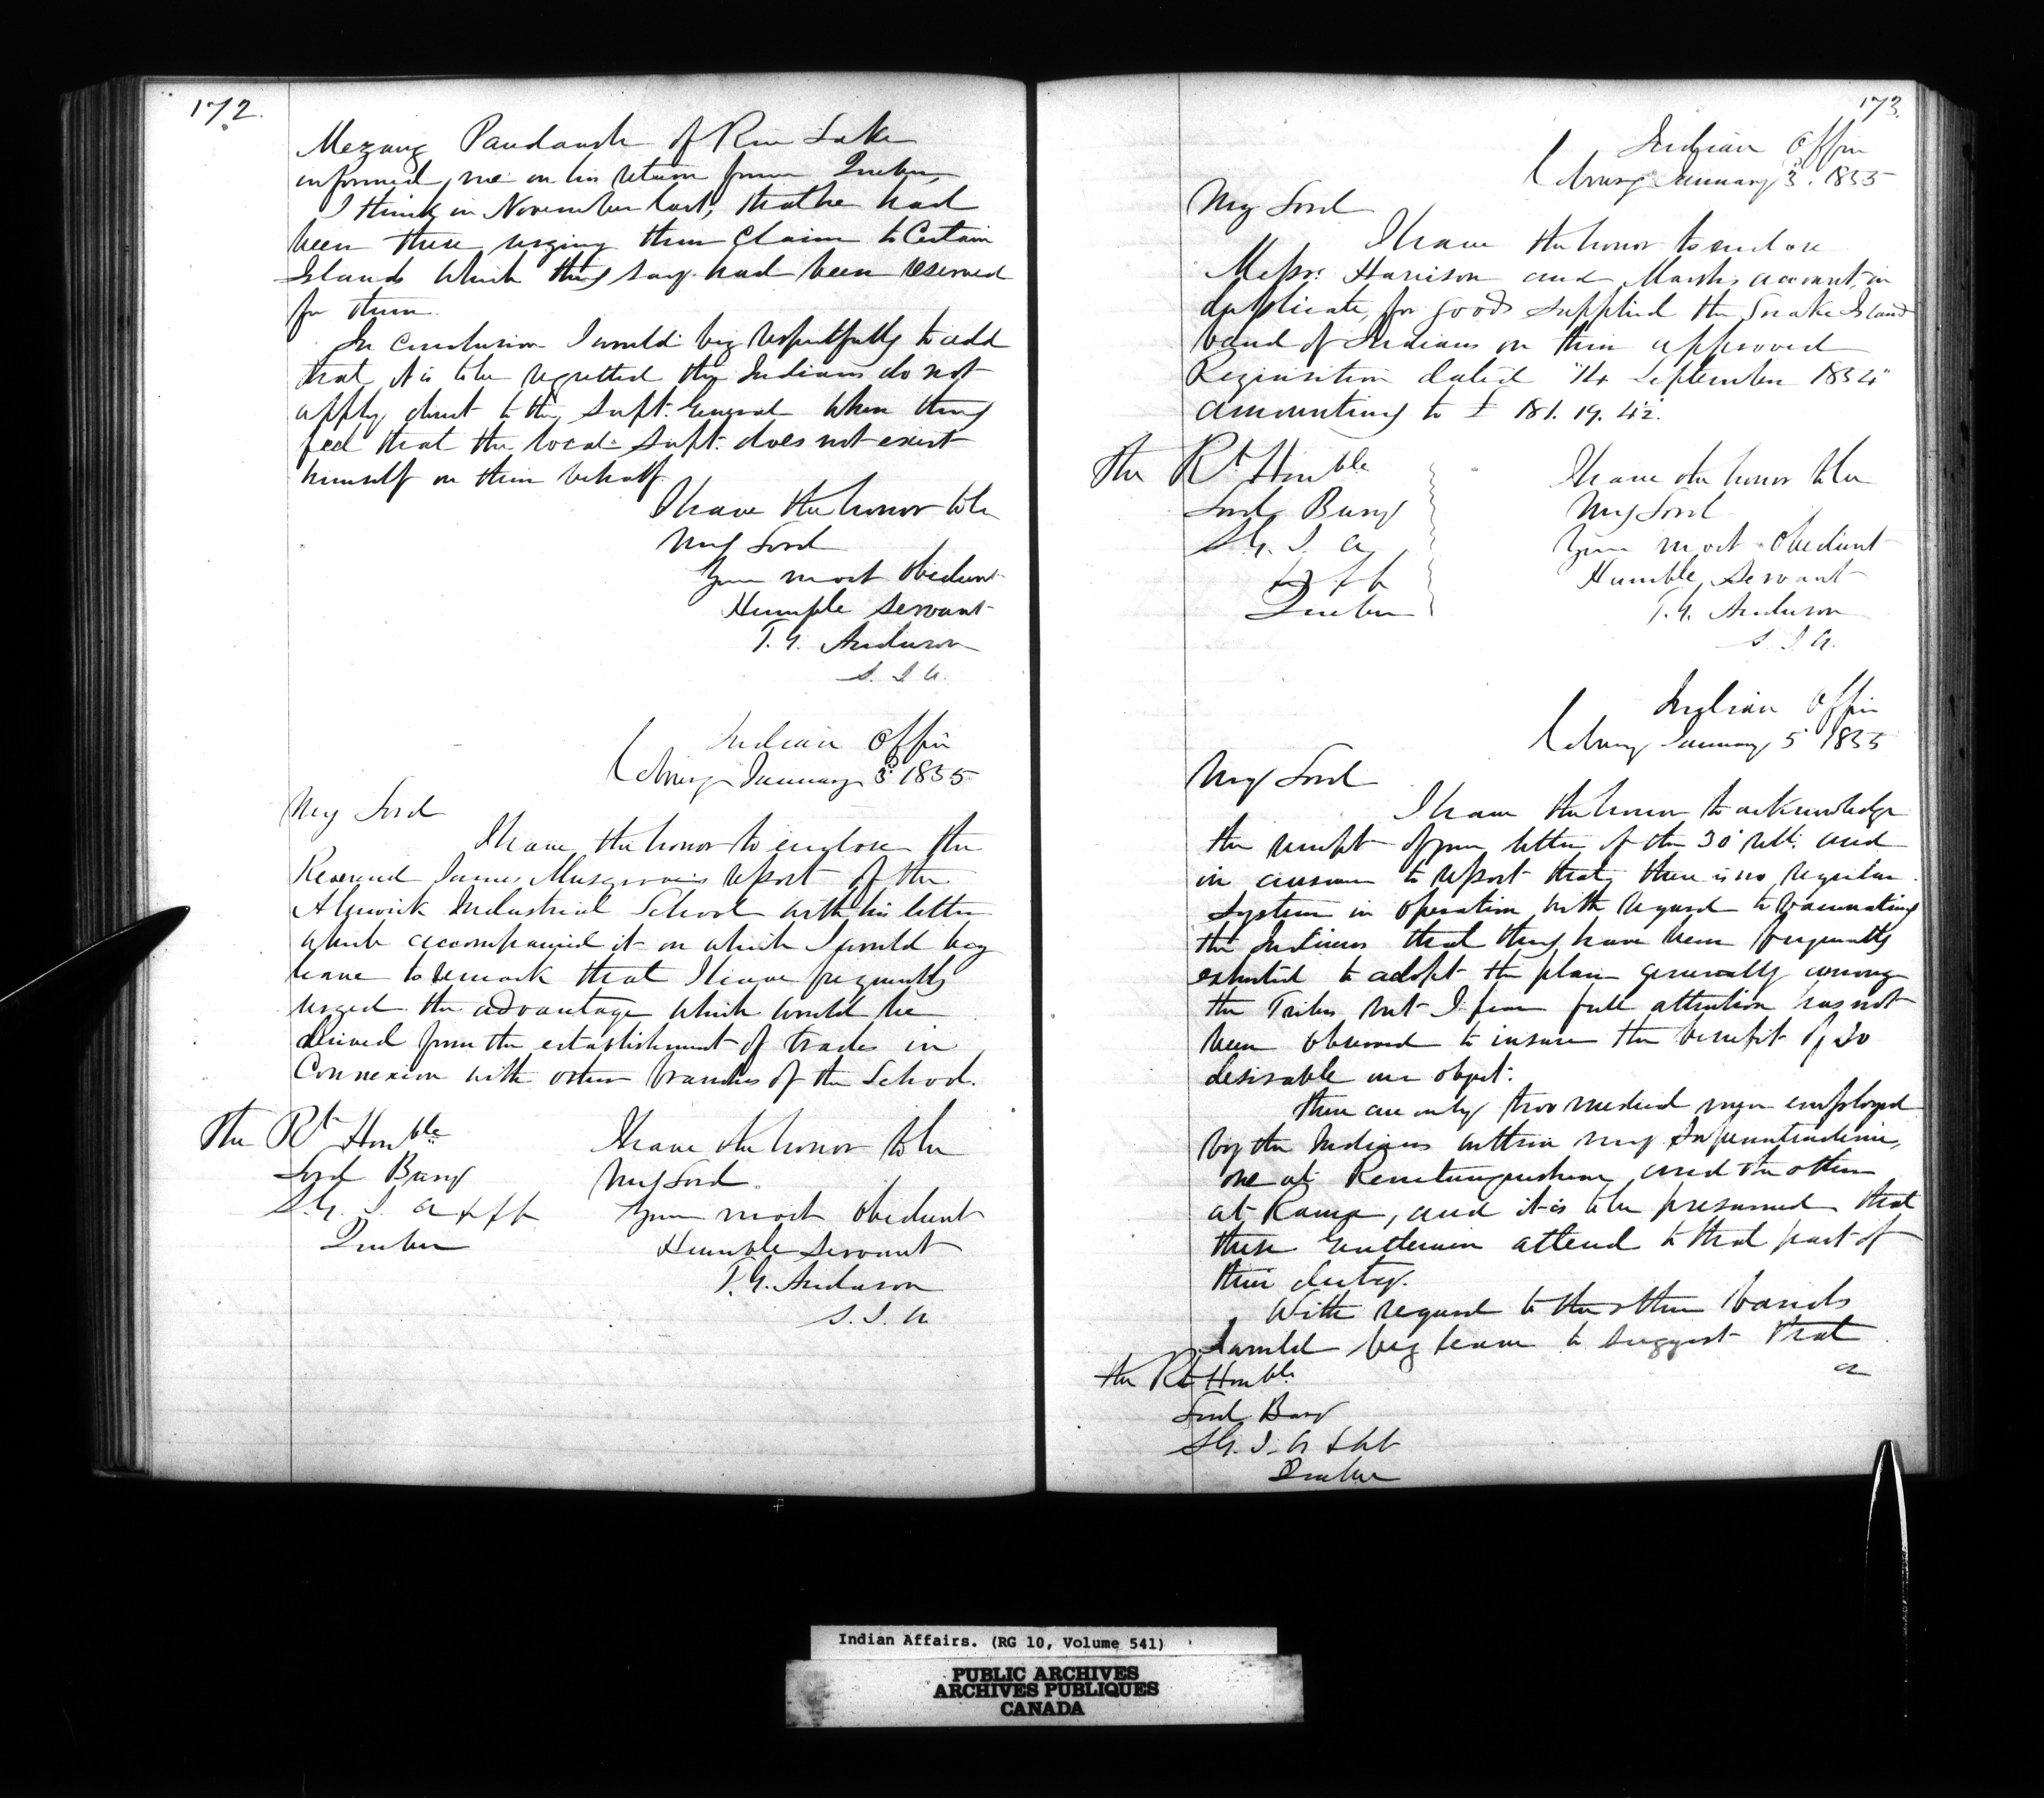 172.
Mezang Paudaush of Rice Lake
informed, me on his return from Quebec,
I think in November last, that he had
been there urging their Claim to Certain
Islands which they say had been reserved
for them.
In conclusion I would beg respectfully to add
that it is to be regretted the Indians do not
apply direct to the Supt. General when they
feel that the local Supt. does not exert
himself on their behalf.
I have the honor to be
My Lord
Your most obedient
Humble servant
T. G. Anderson
S. I. A.
Indian Office
Cobourg January 3d 1855
My Lord
I have the honor to enclose the
Reverend James Musgrove's report of the
Alnwick Industrial School with his letter
which accompanied it on which I would beg
leave to remark that I have frequently
urged the advantage which would be
derived from the establishment of trades in
Connexion with other branches of the School.
The Rt Honble
Lord Bury
S. G. I. A &c &c
Quebec
I have the honor to be
My Lord.
Your most obedient
Humble servant
T. G. Anderson
S. I. A
173.
Indian Office
Cobourg January 3d. 1855
My Lord
I have the honor to enclose
Messrs. Harrison and Marsh's account, in
duplicate, for goods supplied the Snake Island
band of Indians on their approved
Requisition dated "14 September 1854"
amounting to £ 181. 19. 4½.
The Rt Honble
Lord Bury
S. G. I. A
&c &c
Quebec
I have the honor to be
My Lord
Your most obedient
Humble, Servant
T. G. Anderson
S. I. A.
Indian Office
Cobourg January 5 1855
My Lord
I have the honor to acknowledge
the receipt of your letter of the 30 ulto. and
in answer to report that, there is no regular
system in operation with regard to vaccinating
the Indians that they have been frequently
exhorted to adopt the plan generally among
the Tribes but I fear full attention has not
been observed to insure the benefit of so
desirable an object.
There are only two medical men employed
by the Indians within my Superintendence,
one at Penetanguishene and the other
at Rama, and it is to be presumed that
these gentlemen attend to that part of
their duty.
With regard to the other bands
I would beg leave to suggest that
a
The Rt Honble
Lord Bury
S. G. I. A &c &c
Quebec
Indian Affairs. (RG 10, Volume 541)
PUBLIC ARCHIVES
ARCHIVES PUBLIQUES
CANADA